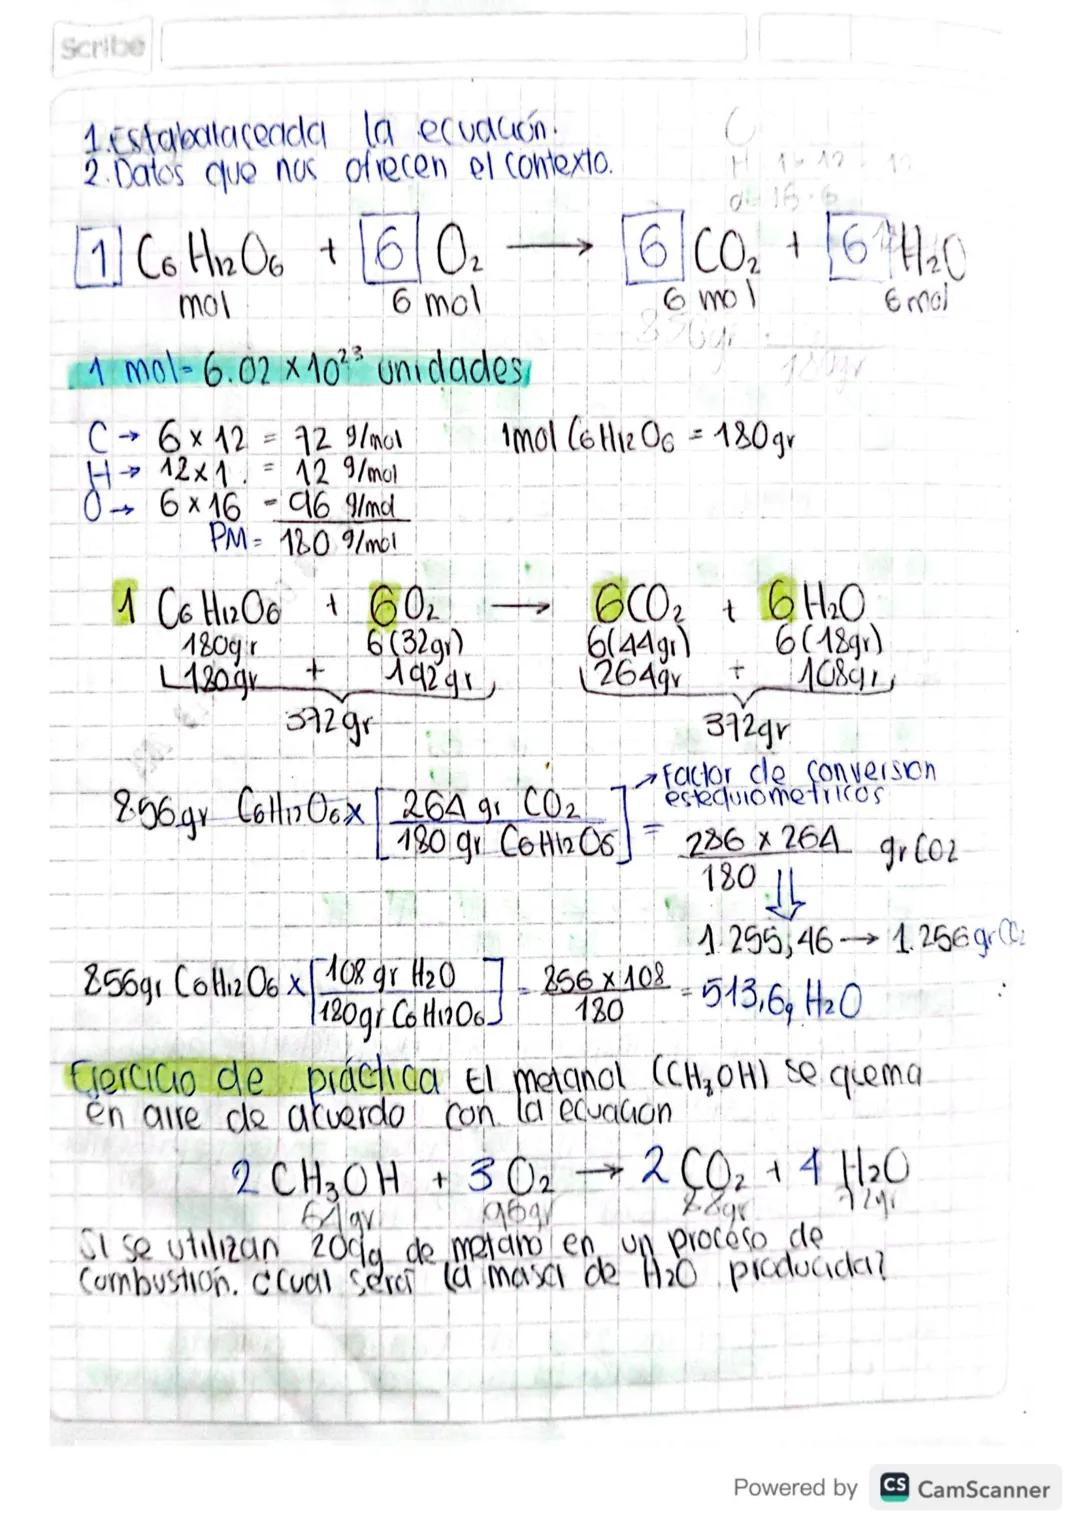 Scribe
1. Estabalaceada la ecuación.
2. Datos que nos ofrecen el contexto.
1 C6 H12 O6 + 6 O2 → 6 CO2 + 6 H2O
mol 6 mol 6 mol 6 mol
1 mol = 6.02 × 10²³ unidades
C → 6 × 12 = 72 g/mol 1mol C6H12O6 = 180gr
H → 12 × 1 = 12 g/mol
O → 6 × 16 = 96 g/mol
PM = 180 g/mol
1 C6 H12O6 + 6O2 → 6CO2 + 6 H2O
180gr 6(32gr) 6(44gr) 6(18gr)
180gr + 192gr 264gr + 108gr
372gr 372gr
→ Factor de conversion
estequiometricos
856gr C6H12O6 × [ 264 gr CO2 / 180 gr C6H12O6 ] = 286 × 264 / 180 gr CO2
⇓
1.255,46 → 1.256 gr CO2
856gr C6H12O6 × [ 108 gr H2O / 180gr C6H12O6 ] = 856 × 108 / 180 = 513,6g H2O
Ejercicio de práctica El metanol (CH3OH) se quema
en aire de acuerdo con la ecuacion
2 CH3OH + 3 O2 → 2 CO2 + 4 H2O
64gr 96gr 88gr 72gr
Si se utilizan 209g de metano en un proceso de
combustión. ¿cual sera la masa de H2O producida?
Powered by CS CamScanner